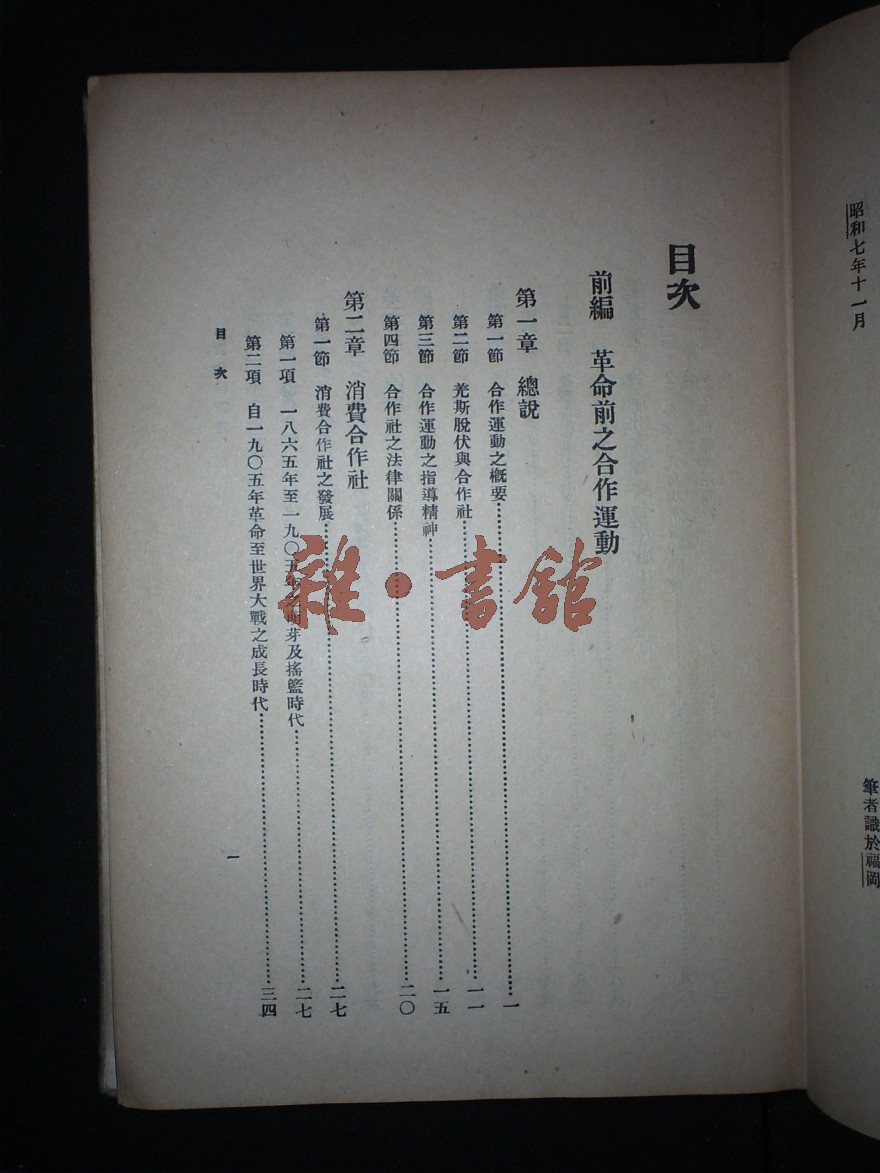 昭和七年十一月
筆者識於福岡
目次
前編 革命前之合作運動
第一章 總說
第一節 合作運動之概要……一
第二節 羌斯脫伏與合作社……一一
第三節 合作運動之指導精神……一五
第四節 合作社之法律關係……二〇
第二章 消費合作社
第一節 消費合作社之發展……二七
第一項 一八六五年至一九〇五年之萌芽及搖籃時代……二七
第二項 自一九〇五年革命至世界大戰之成長時代……三四
目次
一
雜·書館